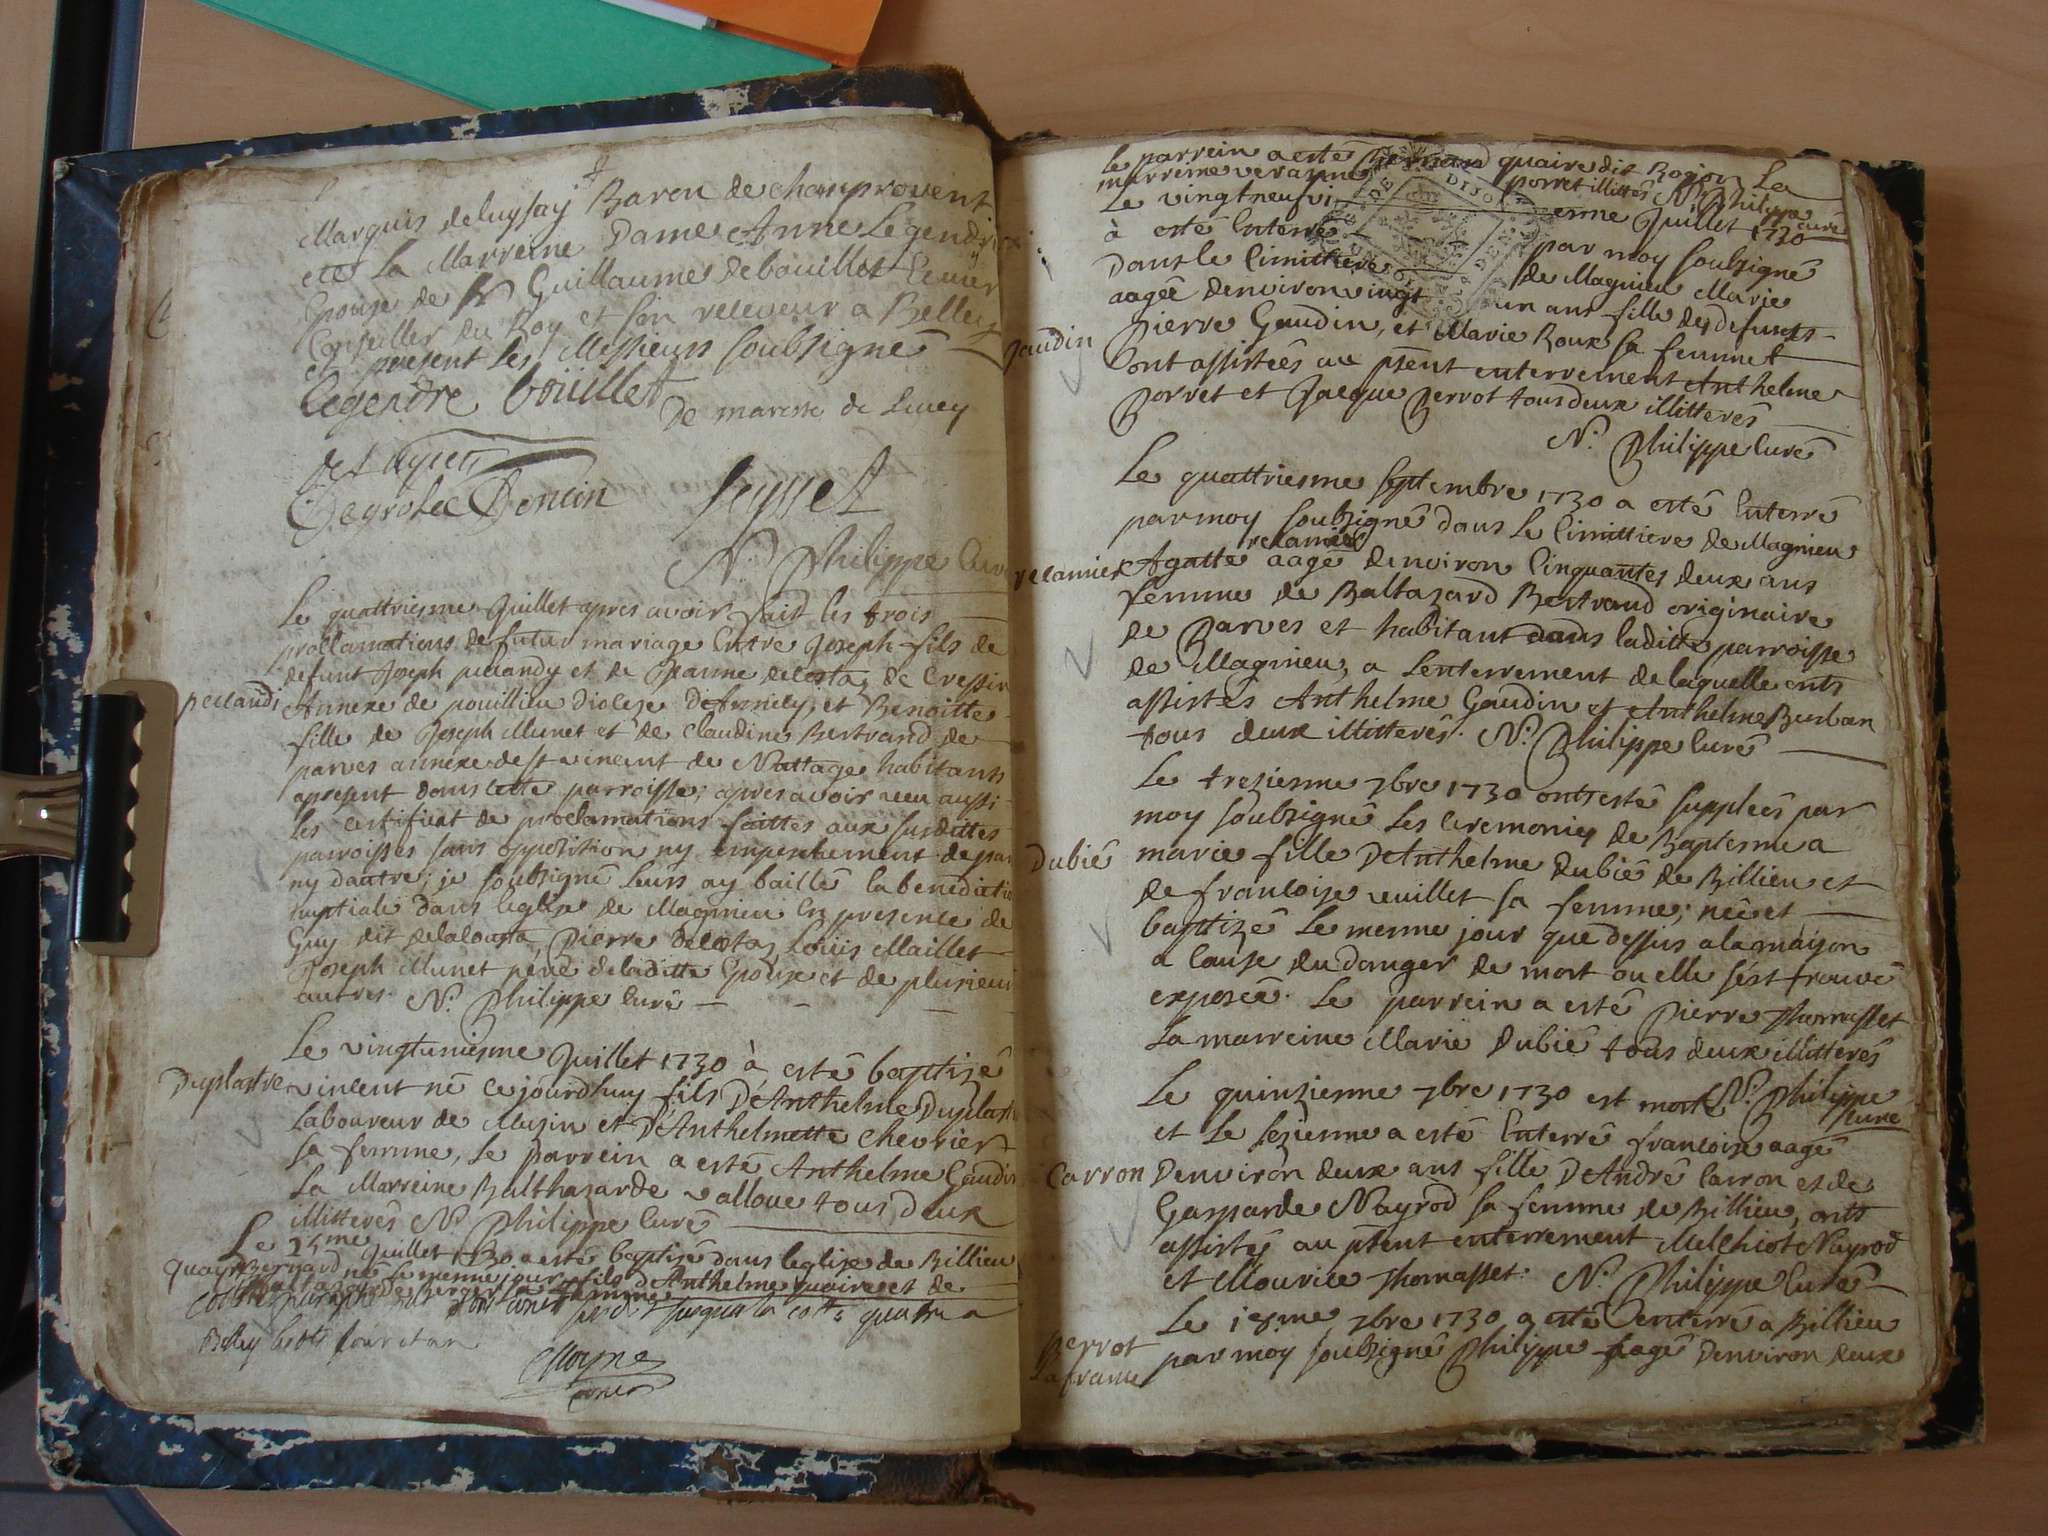 Marquis de luysay Baron de champrovent
ete La Marreine Dame Anne Legendre
Epouse de Mr Guillaume de bouillet Ecuier
Conseiller du Roy et son receveur a Belley
et present les Messieurs soubsignes
Legendre boüillet
De mareste de Lucey
Seysset
N. Philippe Curé
Le quattriesme Juillet apres avoir fait les trois
proclamations de futur mariage entre Joseph fils de
defunt Joseph peclandy et de Jeanne delostaz de Cressin
peclandi
Annexe de pouillieu Diocese D'Annecy, et Benoitte
fille de Joseph Munet et de Claudine Bertrand de
parves annexe de st vincent de Nattage habitants
apresent dans cette parroisse; apres avoir veu aussi
les certificat de proclamations faittes aux susdittes
parroisses sans opposition ny empeschement de par
ny dautre; je soubsigné leurs ay baillé la benedictio
nuptiale dans leglise de Magnieu En presence de
Guy dit delalouata, Pierre delostaz, Louis Maillet
Joseph Munet pere deladitte Epouse et de plusieurs
autres. N. Philippe Curé
Le vingtuniesme Juillet 1730 à esté baptizé
Duplastre
vincent né ce jourdhuy fils D'Anthelme Duplast
Laboureur de Musin et D'Anthelmette Chevrier
sa femme, le parrein a esté Anthelme Gaudin
La Marreine Balthazarde valloue tous deux
illitterés N. Philippe Curé
Le 25me Juillet 1730 a esté baptizé dans leglise de Billieu
Quayre
Bernard né le mesme jour fils d'Anthelme quaire et de
Baltazarde Berger sa femme
Cotté et paraphé jusques la cotte quatre a
Belley
le parrein a esté Bernard quaire dit Rojon La
marreine veranne porret illittes N. Philippe
curé
Le vingtneufvi eme Juillet 1730
à esté Enterré par moy soubsigné
Dans le Cimittiere de Magnieu Marie
aagée Denviron vingt un ans fille des defunts
Gaudin
Pierre Gaudin, et Marie Roux sa femme
Sont assistées au pñent enterrement Anthelme
Porret et Jacque Perrot tous deux illitterés
N. Philippe Curé
Le quattriesme Septembre 1730 a esté Enterré
par moy soubsigné dans Le Cimittiere de Magnieu
recamier
recamier
Agatte aagé denviron Cinquantes deux ans
femme de Baltazard Bertrand originaire
de Parves et habitant dans laditte parroisse
de Magnieu, a Lenterrement de laquelle onts
assistés Anthelme Gaudin et Anthelme Burban
tous deux illitterés. N. Philippe Curé
Le tresiesme 7bre 1730 onts esté supplées par
moy soubsigné Les Ceremonies de Baptesme a
Dubié
marie fille D'Anthelme Dubié de Billieu et
de francoise veuillet sa femme; née et
baptizé Le mesme jour que dessus a la maison
a Cause du danger de mort ou elle sest trouvé
exposée. Le parrein a esté Pierre Thomasset
La marreine Marie Dubié tous deux illitterés
N. Philippe
Curé
Le quinziesme 7bre 1730 est morte
et Le seziesme a esté Enterré francoise aagé
Carron
Denviron deux ans fille D'André Carron et de
Gasparde Nayrod sa femme de Billieu, onts
assistés au pñent enterrement Melchiot Nayrod
et Mourice Thomasset. N. Philippe Curé
Le 18me 7bre 1730 a esté enterré a Billieu
Perrot
Lafranc
par moy soubsigné Philippe aagé Denviron deux